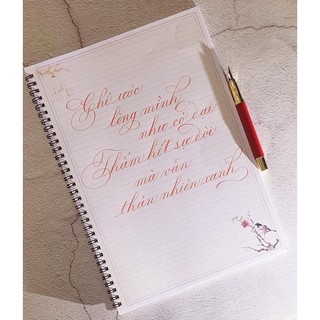 Chỉ ước
lòng mình
như cỏ dại
Thấm hết sự đời
mà vẫn
thản nhiên xanh